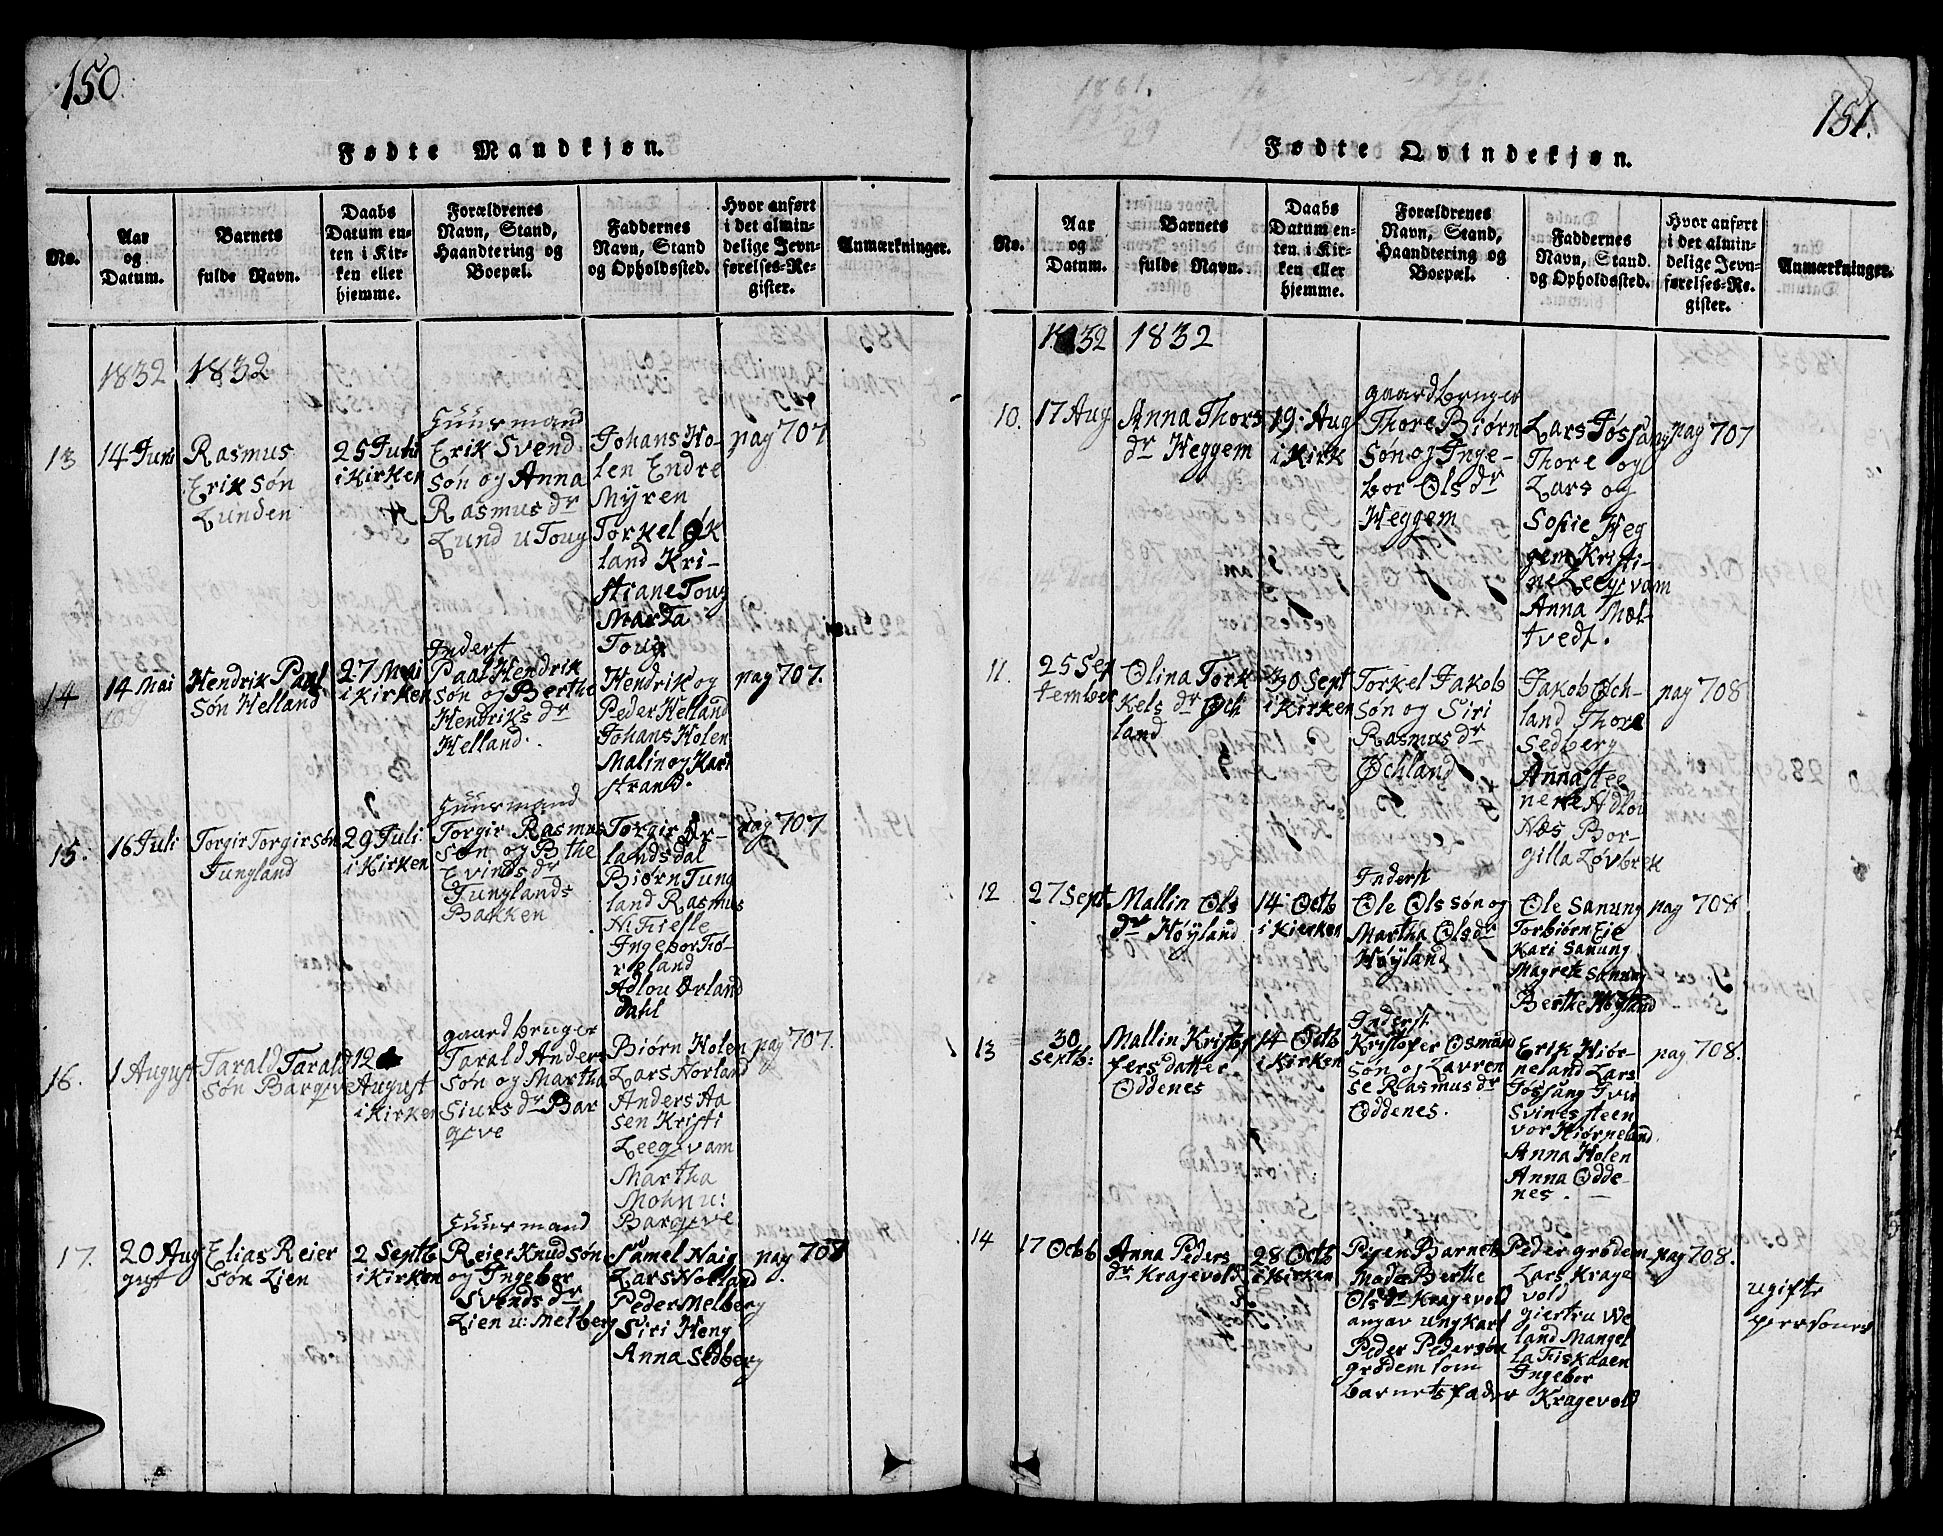 150.
Fødte Mandkjøn.
No.
Aar
og
Datum.
Barnets
fulde Navn.
Daabs
Datum en-
ten i Kir-
ken eller
hjemme.
Forældrenes
Navn, Stand,
Haandtering og
Boepæl.
Faddernes
Navn, Stand
og Opholdssted.
Hvor anført
i det almin-
delige Jevn-
førelses-Re-
gister.
Anmærkninger.
1832
1832
13
14 Juni
Rasmus
Erik Søn
Lunden
25 Juli
i Kirken
Huusmand
Erik Svend
Søn og Anna
Rasmus dr
Lund u Toug
Johans Ho-
len Endre
Myren
Torkel Øk
land Kri-
stiane Toug
Marta
Toug
pag 707
14
14 Mai
Hendrik Paul
Søn Helland
27 Mai
i Kirken
Inderst
Paal Hendrik
søn og Berthe
Hendriks dr
Helland.
Hendrik og
Peder Helland
Johans Holen
Malin og Kari
Strand.
pag 707.
15.
16 Juli
Torgir Torgirsøn
Tungland
29 Juli
i Kirken
Huusmand
Torgir Rasmus
søn og Bthe
Evinds dr
Tunglands
Bakken
Torgir Ør-
landsdal
Biørn Tung
land Rasmus
N Fiesle
Ingebor Fø-
reland
Adlou Ørland
dahl
pag 707
16.
1 August
Tarald Tarald
Søn Bargeve
12
August
i Kirken
gaardbruger
Tarald Anders
søn og Martha
Siurs dr Bar
geve
Biørn Holen
Lars Norland
Anders Aa
sen Kristi
Leegvam
Martha
Mohn u:
Bargeve
pag 707.
17.
20 Aug
gust
Elias Reier
Søn Lien
2 Septb
i Kirken
Huusmand
Reier Knudsøn
og Ingebor
Svends dr
Lien u: Melberg
Samel Haig
Lars Holland
Peder Melberg
Siri Heng
Anna Sedberg
pag 708
151.
Fødte Qvindekjøn.
No.
Aar
og
Datum.
Barnets
fulde Navn.
Daabs
Datum en-
ten i Kir-
ken eller
hjemme.
Forældrenes
Navn, Stand,
Haandtering og
Boepæl.
Faddernes
Navn, Stand
og Opholdssted.
Hvor anført
i det almin-
delige Jevn-
førelses-Re-
gister.
Anmærkninger.
1832
1832
10.
17 Aug
Anna Thors
dr Heggem
19. Aug
i Kirk
gaardbruger
Thore Biørn
Søn og Inge-
bor Ols dr
Heggem
Lars Jøssang
Thore og
Lars og
Sofie Heg
gem Kristi-
ne Leegvam
Anna Mæl-
tvedt.
pag 707
11.
25 Sep
tember
Olina Tor
Kels dr Øch
land
30 Sept
i Kirken
Torkel Jakob
Søn og Siri
Rasmus dr
Øchland
Jakob Øch-
land Thore
Sedberg
Anna Stee
nene Adlou
Næs Bor-
gilla Løvbrek
pag 708
12
27 Sept
Mallin Ols
dr Høyland
14 Octb
i Kierken
Inderst
Ole Olssøn og
Martha Olsdr
Høyland
Ole Sanung
Torbiørn Eie
Kari Sanung
Magrete Sanung
Berthe Høyland
pag 708
13
30
Septb:
Mallin Kristof
fers datter
Oddenes
14 Octb
i Kirken
Inderst
Kristofer Osmand
søn og Lavren
se Rasmus dr
Oddenes.
Erik Hiør-
neland Lars
Jøssang Iver
Svines steen
vor Hiørneland
Anna Holen
Anna Odde-
nes.
pag 708.
14
17 Octb
Anna Peders
dr Kragevold
28 Octb
i Kirken
Pigen Barnets
Moder Berthe
Ols dr Kragevold
angav Ungkarl
Peder Pedersøn
grødem som
barnets fader
Peder grødem
Lars Krage
vold
giertru We
land Mangel
la Fiskaaen
Ingebor
Kragevold
pag 708.
ugifte
personer